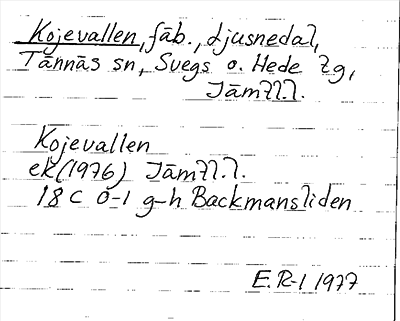 Kojevallen, fäb., Ljusnedal,
Tännäs sn, Svegs o. Hede tg,
Jämtl.l.
Kojevallen
ek (1976) Jämtl.l.
18 C 0-1 g-h Backmansliden
E. R-l 1977